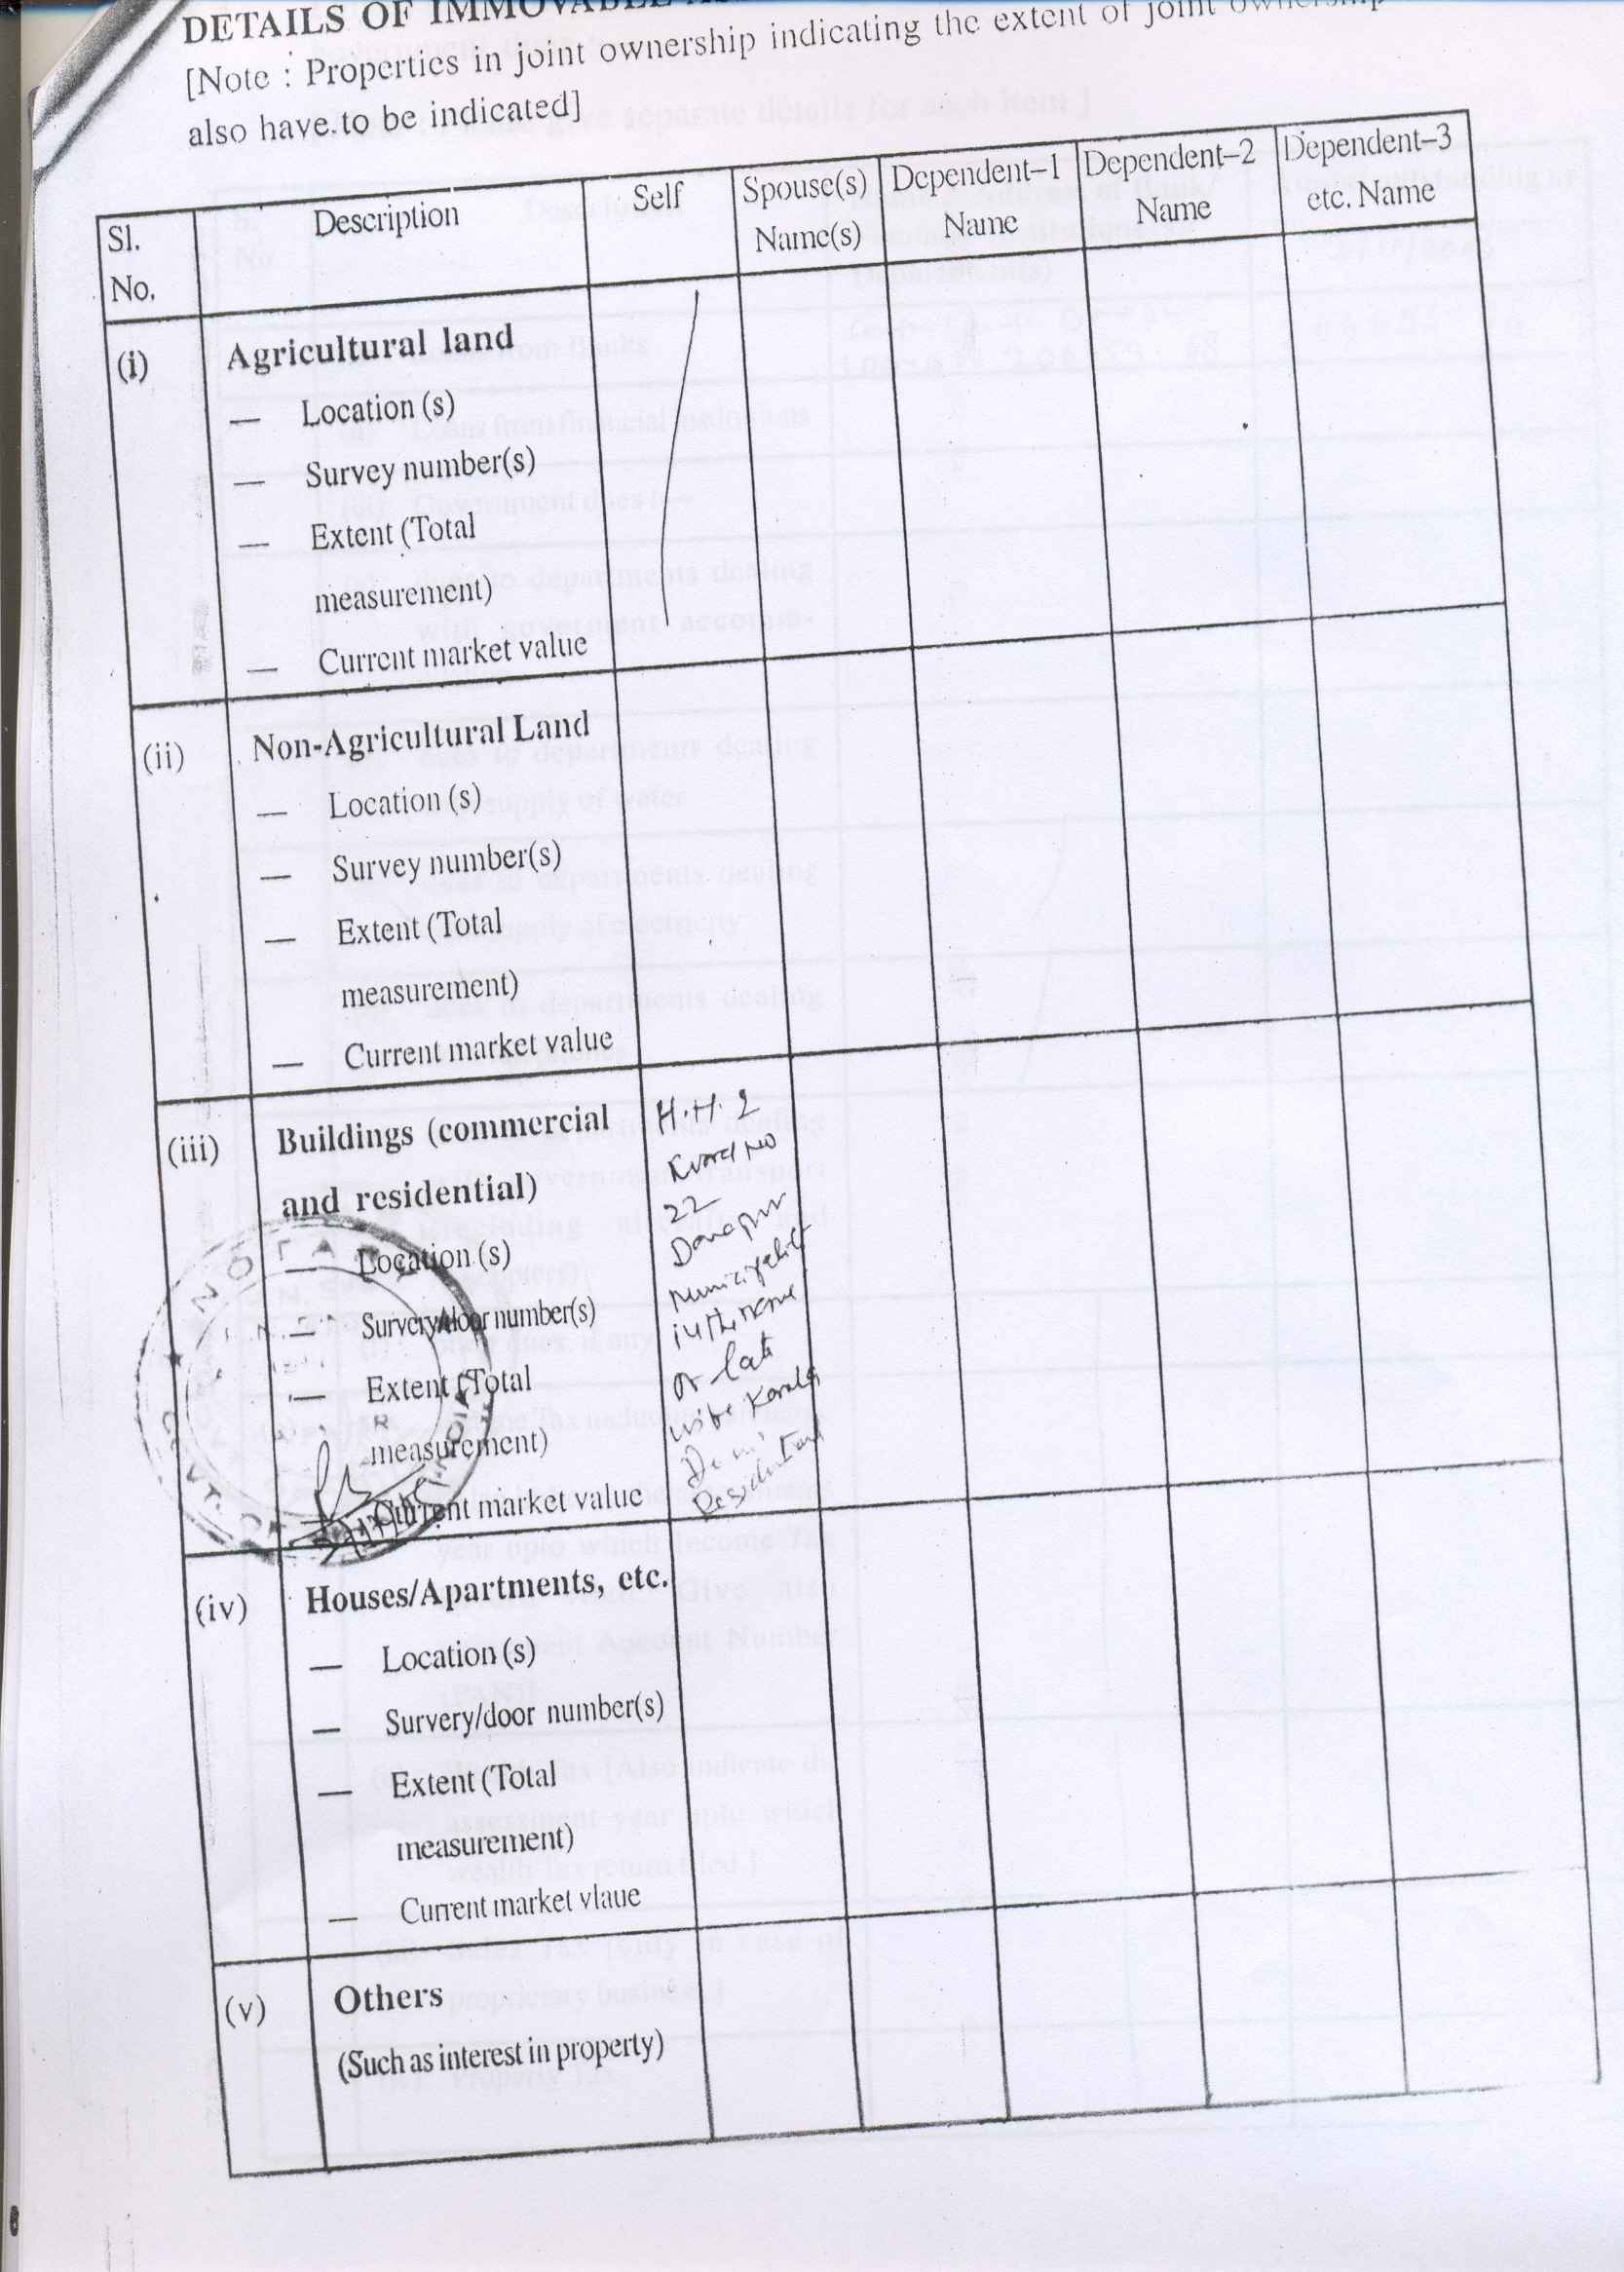 DETAILS OF IMMOVABLE
[Note : Properties in joint ownership indicating the extent of joint ownership
also have to be indicated]
Sl. No. Description Self Spouse(s) Name(s) Dependent–1 Name Dependent–2 Name Dependent–3 etc. Name
(i) Agricultural land
— Location (s)
— Survey number(s)
— Extent (Total
measurement)
— Current market value
(ii) Non-Agricultural Land
— Location (s)
— Survey number(s)
— Extent (Total
measurement)
— Current market value
(iii) Buildings (commercial
and residential)
— Location (s)
— Survery/door number(s)
— Extent (Total
measurement)
— Current market value
H.H. 2
22
Danapur
Municipality
in the name
of late
wife
Devi
Residential
NOTARY
GOVT. OF
(iv) Houses/Apartments, etc.
— Location (s)
— Survery/door number(s)
— Extent (Total
measurement)
— Current market vlaue
(v) Others
(Such as interest in property)